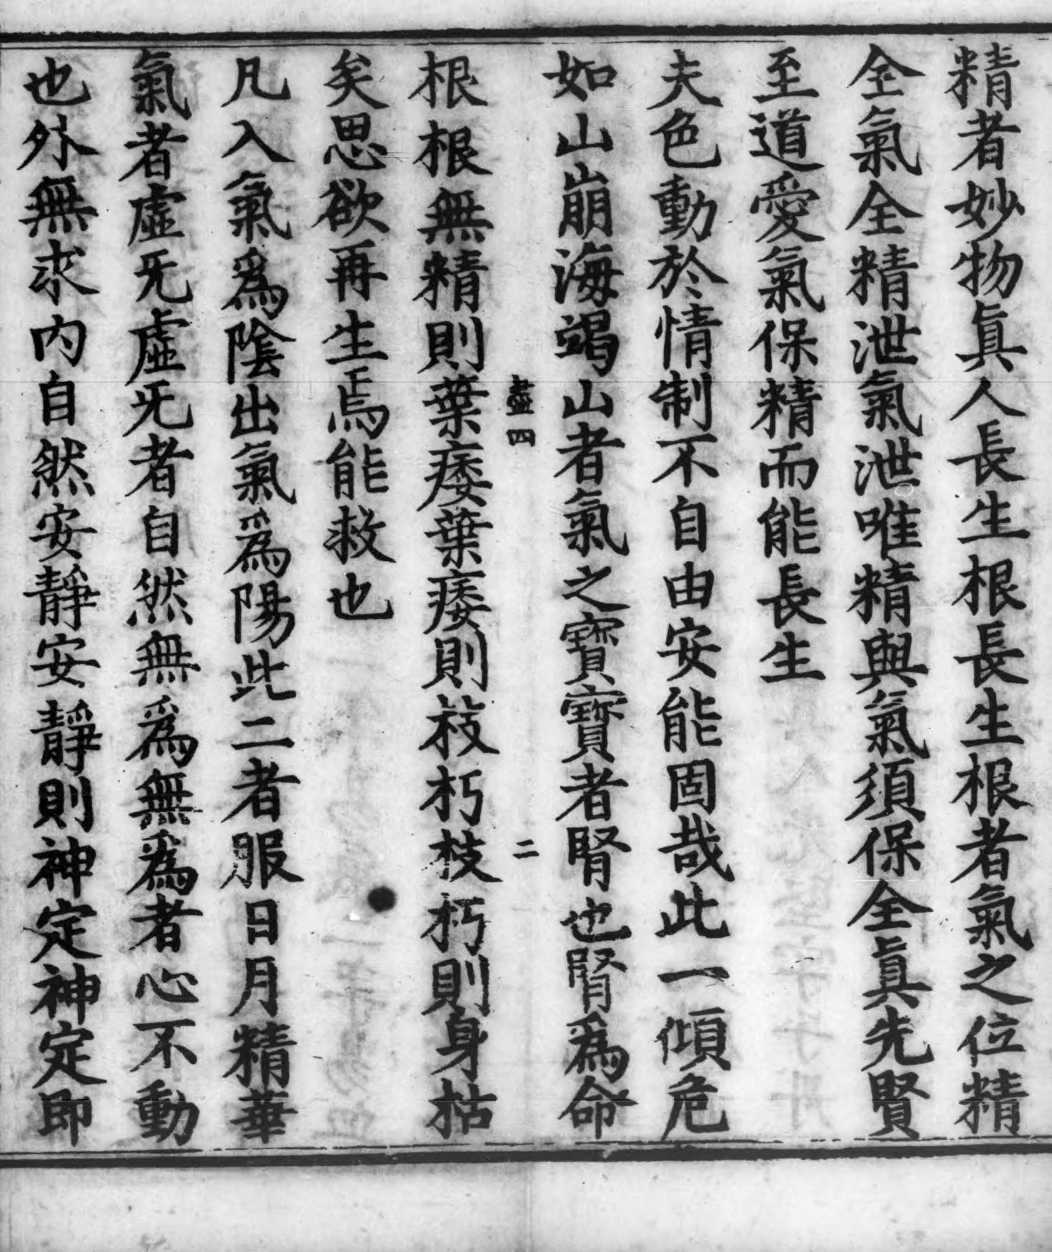 精者妙物眞人長生根長生根者氣之位精
全氣全精泄氣泄唯精與氣須保全眞先賢
至道愛氣保精而能長生
夫色動於情制不自由安能固哉此一傾危
如山崩海竭山者氣之寶寶者腎也腎爲命
盡四
二
根根無精則葉痿葉痿則枝朽枝朽則身枯
矣思欲再生焉能救也
凡入氣爲陰出氣爲陽此二者服日月精華
氣者虛旡虛旡者自然無爲無爲者心不動
也外無求內自然安靜安靜則神定神定即